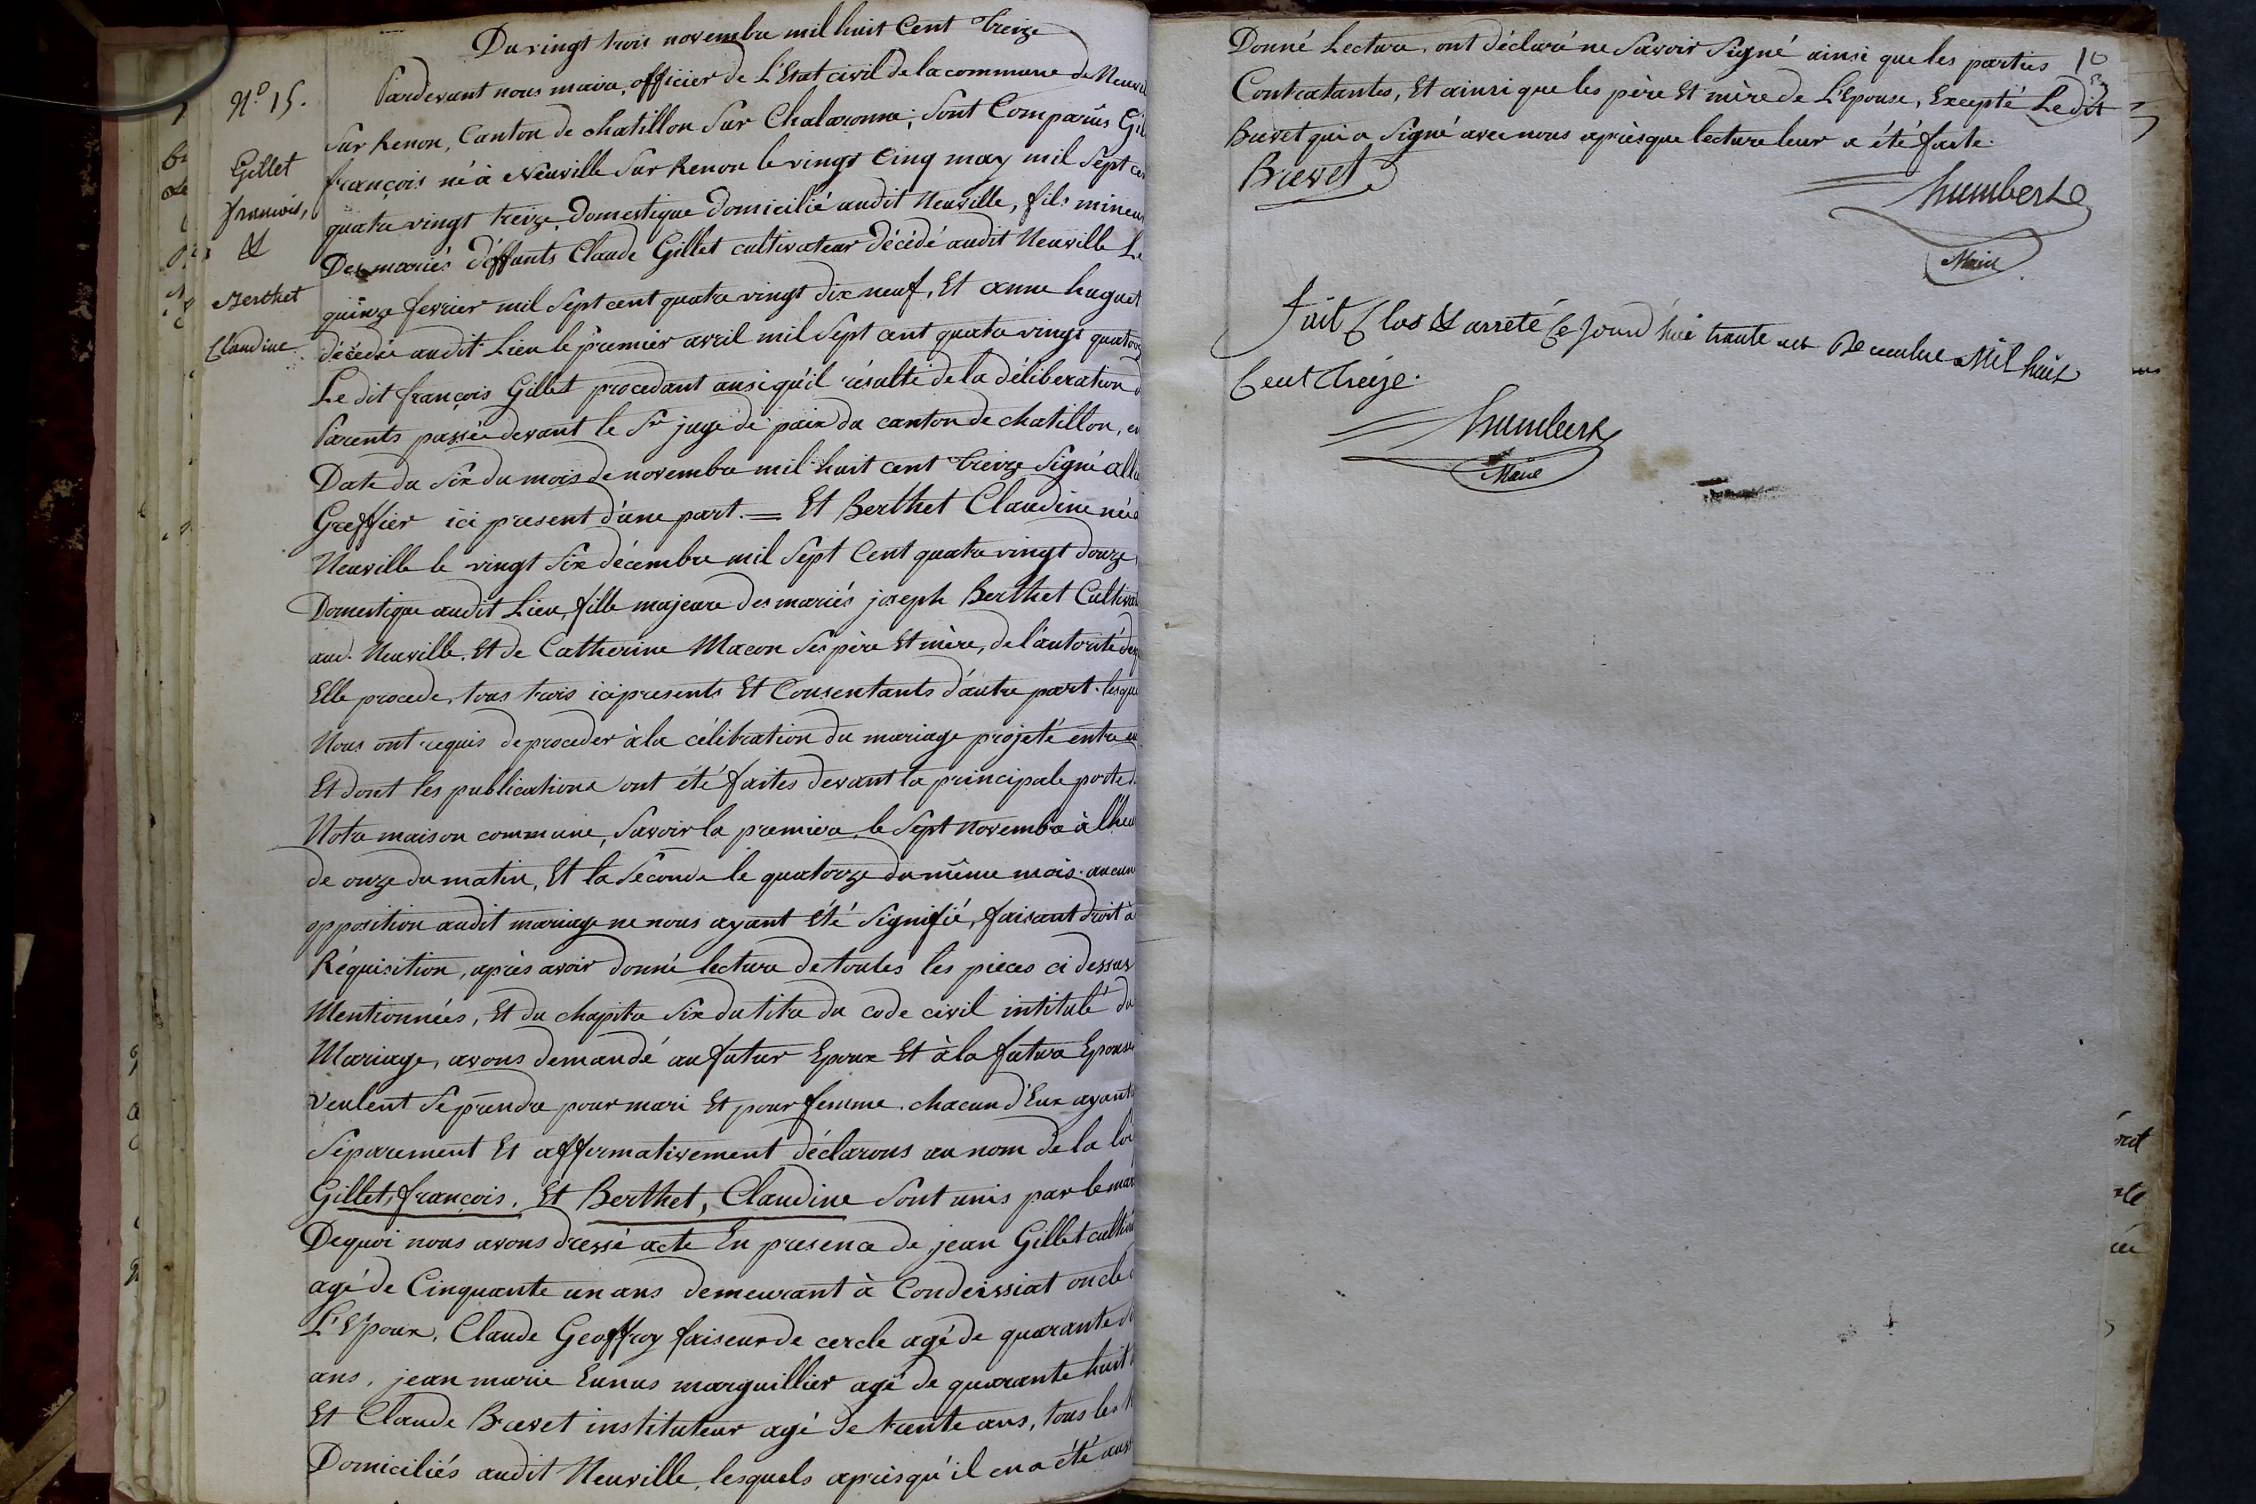 Du vingt trois novembre mil huit Cent treize
N.o 15.
Gillet
francois,
&
Berthet
Claudine.
Pardevant nous maire, officier de L'Etat civil de la commune de Neuvil
Sur Renon, Canton de chatillon Sur Chalaronne; Sont Comparus Gil
françois né à Neuville Sur Renon le vingt Cinq may mil Sept ce
quatre vingt treize, Domestique Domicilié audit Neuville, fils mineur
Des mariés deffunts Claude Gillet cultivateur décédé audit Neuville Le
quinze fevrier mil Sept cent quatre vingt dix neuf, Et anne huguet
décédée audit Lieu le premier avril mil Sept cent quatre vingt quatorz
Le dit françois Gillet procedant ansi qu'il résulte de la déliberation d
Parents passée devant le Sr juge de paix du canton de chatillon, en
Date du Six du mois de novembre mil huit cent treize Signé all
Greffier ici present d'une part. = Et Berthet Claudine née
Neuville le vingt Six décembre mil Sept Cent quatre vingt douze
Domestique audit Lieu, fille majeure des mariés joseph Berthet Cultiva
aud. Neuville, Et de Catherine Macon Ses père Et mère, de l'autorité des
Elle procede, tous trois ici presents Et Consentants d'autre part. lesque
Nous ont requis de proceder à la célébration du mariage projeté entre eu
Et dont les publications ont été faites devant la principale porte d
Notre maison commune, Savoir la premiere le Sept novembre à l'heu
de onze du matin, Et la Séconde le quatorze du même mois. aucun
opposition audit mariage ne nous ayant Eté Signifié, faisant droit à
Réquisition, après avoir donné lecture de toutes les pieces ci dessus
Mentionnées, Et du chapitre Six du titre du code civil intitulé du
Mariage, avons demandé au futur Epoux Et à la future Epouse
veulent Se prendre pour mari Et pour femme. chacun d'Eux ayant
Séparement Et affirmativement déclarons au nom de la loi
Gillet, françois, Et Berthet, Claudine Sont unis par le mar
Dequoi nous avons dressé acte En presence de jean Gillet cultiva
agé de Cinquante un ans demeurant à Condeissiat oncle d
L'Epoux, Claude Geoffroy faiseur de cercle agé de quarante
ans, jean marie Eunus marguillier agé de quarante huit
Et Claude Brevet instituteur agé de trente ans, tous les
Domiciliés audit Neuville, lesquels après qu'il en a été aussi
10
Donné Lecture, ont déclaré ne Savoir Signé ainsi que les parties
Contratantes, Et ainsi que les père Et mère de L'Epouse, Excepté Le dit
Brevet qui a Signé avec nous après que lecture leur a été faite.
Brevet
humbert
Maire
Fait Clos & arreté Ce Jourd'hui trente un Decembre Mil huit
Cent treize.
humbert
Maire